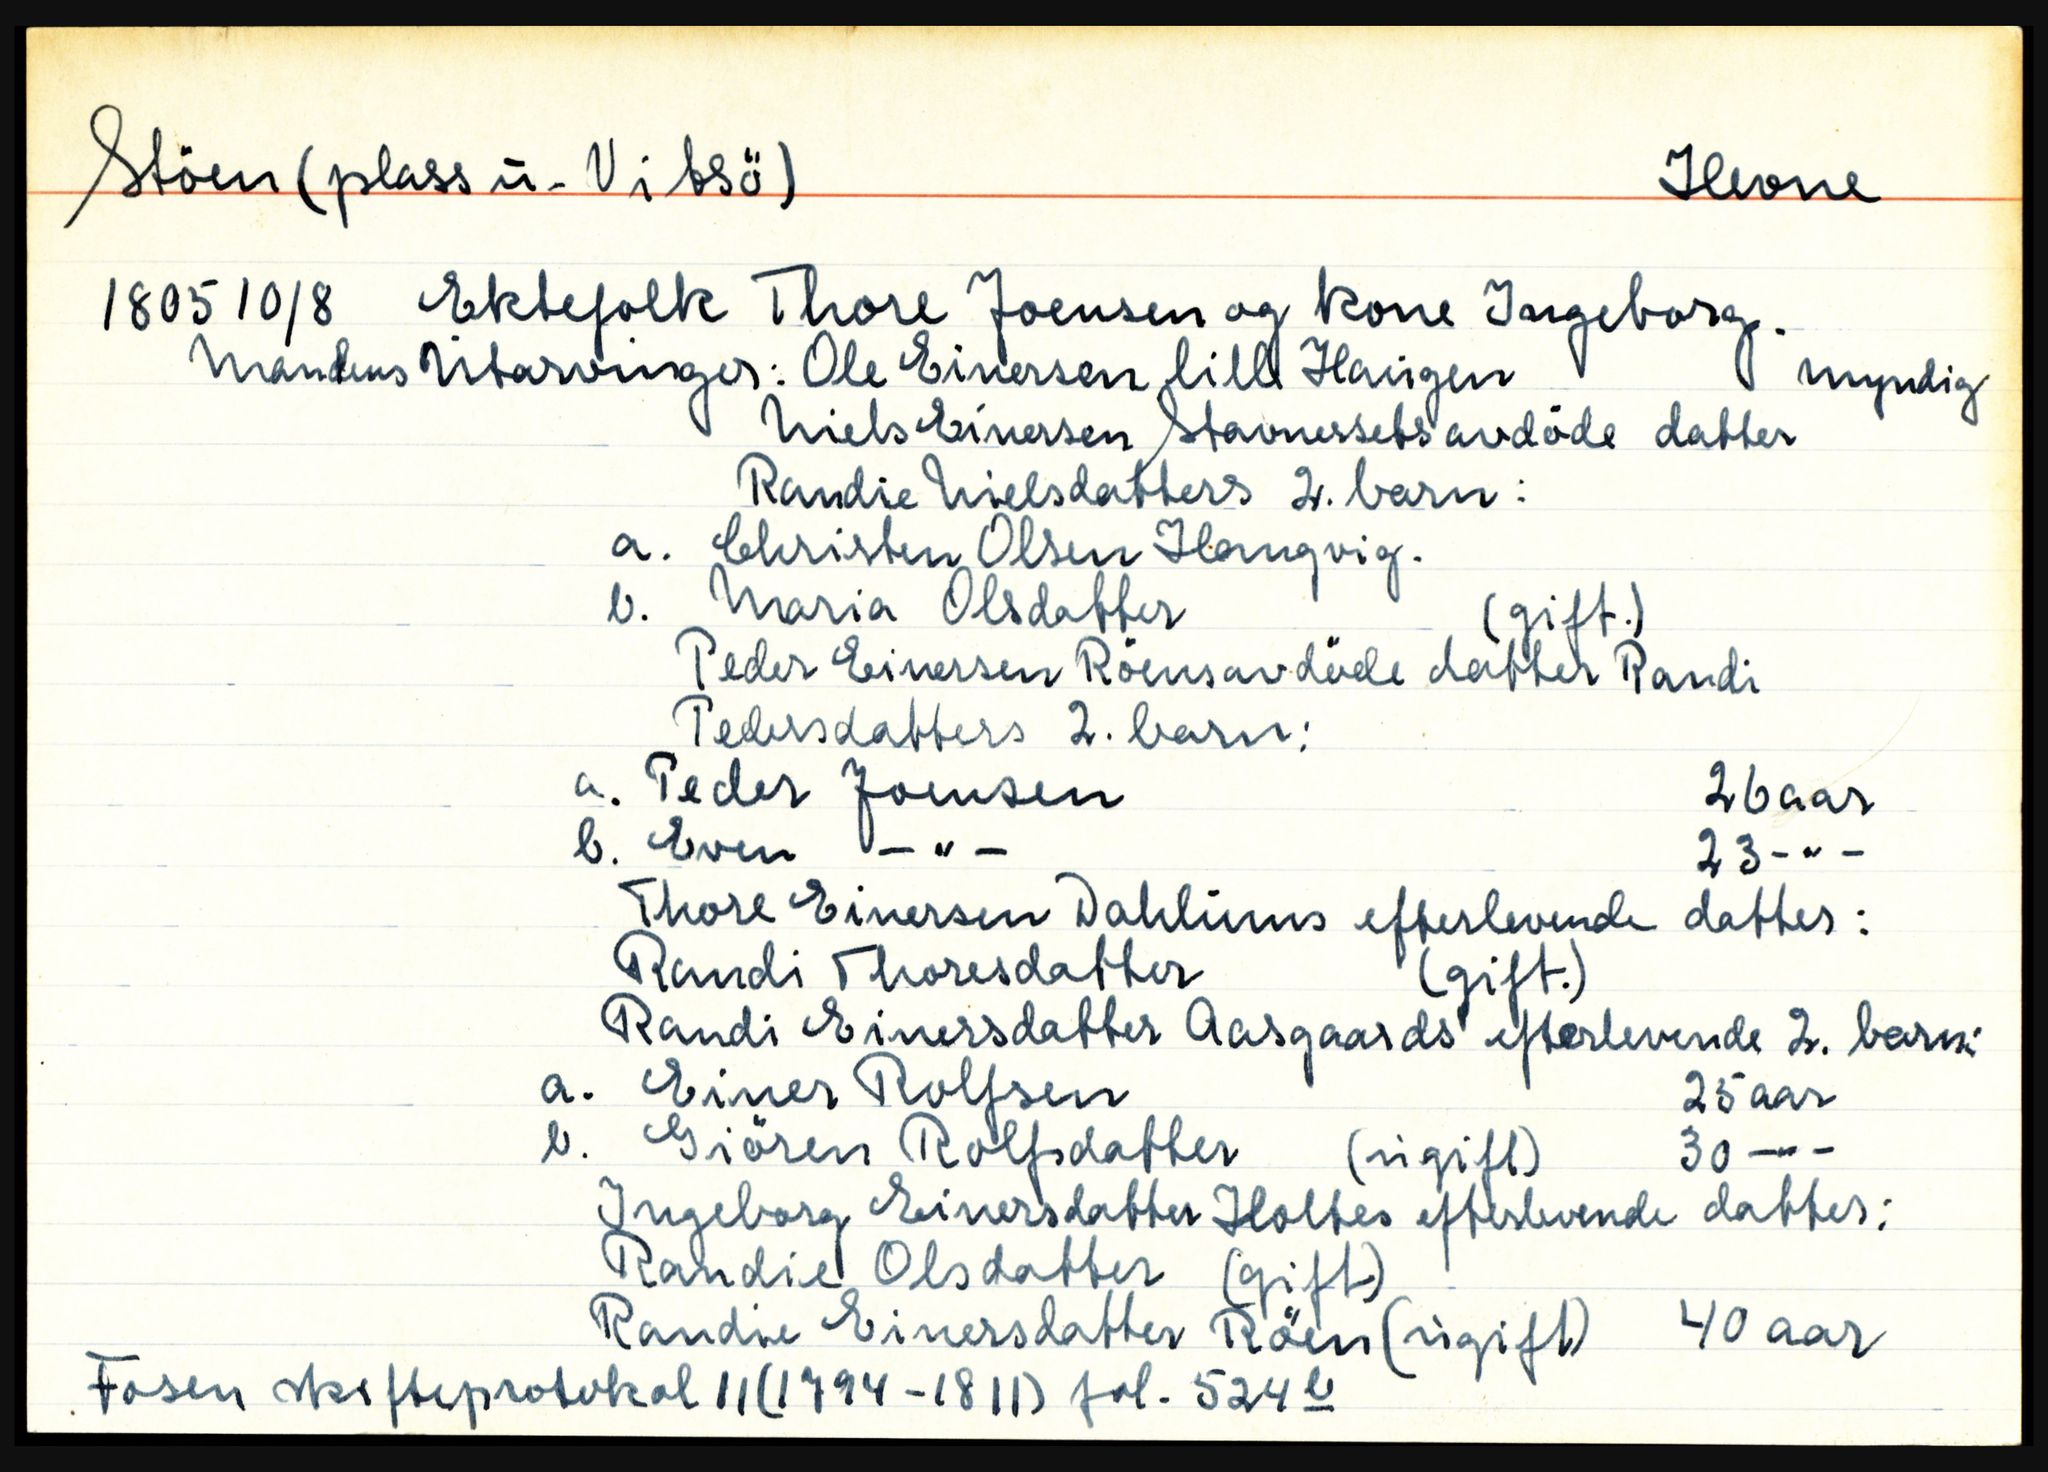 Stöen (plass u. Vitsö) Hevne
1805 10/8 Ektefolk Thore Joensen og kone Ingeborg.
Mandens Utarvinger: Ole Einersen lill Haugen myndig
Niels Einersen Stavnessets avdöde datter
Randie Nielsdatters 2. barn:
a. Christen Olsen Hangvig.
b. Maria Olsdatter (gift.)
Peder Einersen Röens avdöde datter Randi
Pedersdatters 2. barn:
a. Peder Joensen 26 aar
b. Even -"- 23 -"-
Thore Einersen Dahlums efterlevende datter:
Randi Thoresdatter (gift.)
Randi Einersdatter Aasgaards efterlevende 2. barn:
a. Einer Rolfsen 25 aar
b. Giören Rolfsdatter (ugift) 30 -"-
Ingeborg Einersdatter Holtes efterlevende datter:
Randie Olsdatter (gift)
Randie Einersdatter Röen (ugift) 40 aar
Fosen skifteprotokol 11 (1794-1811) fol. 524 b